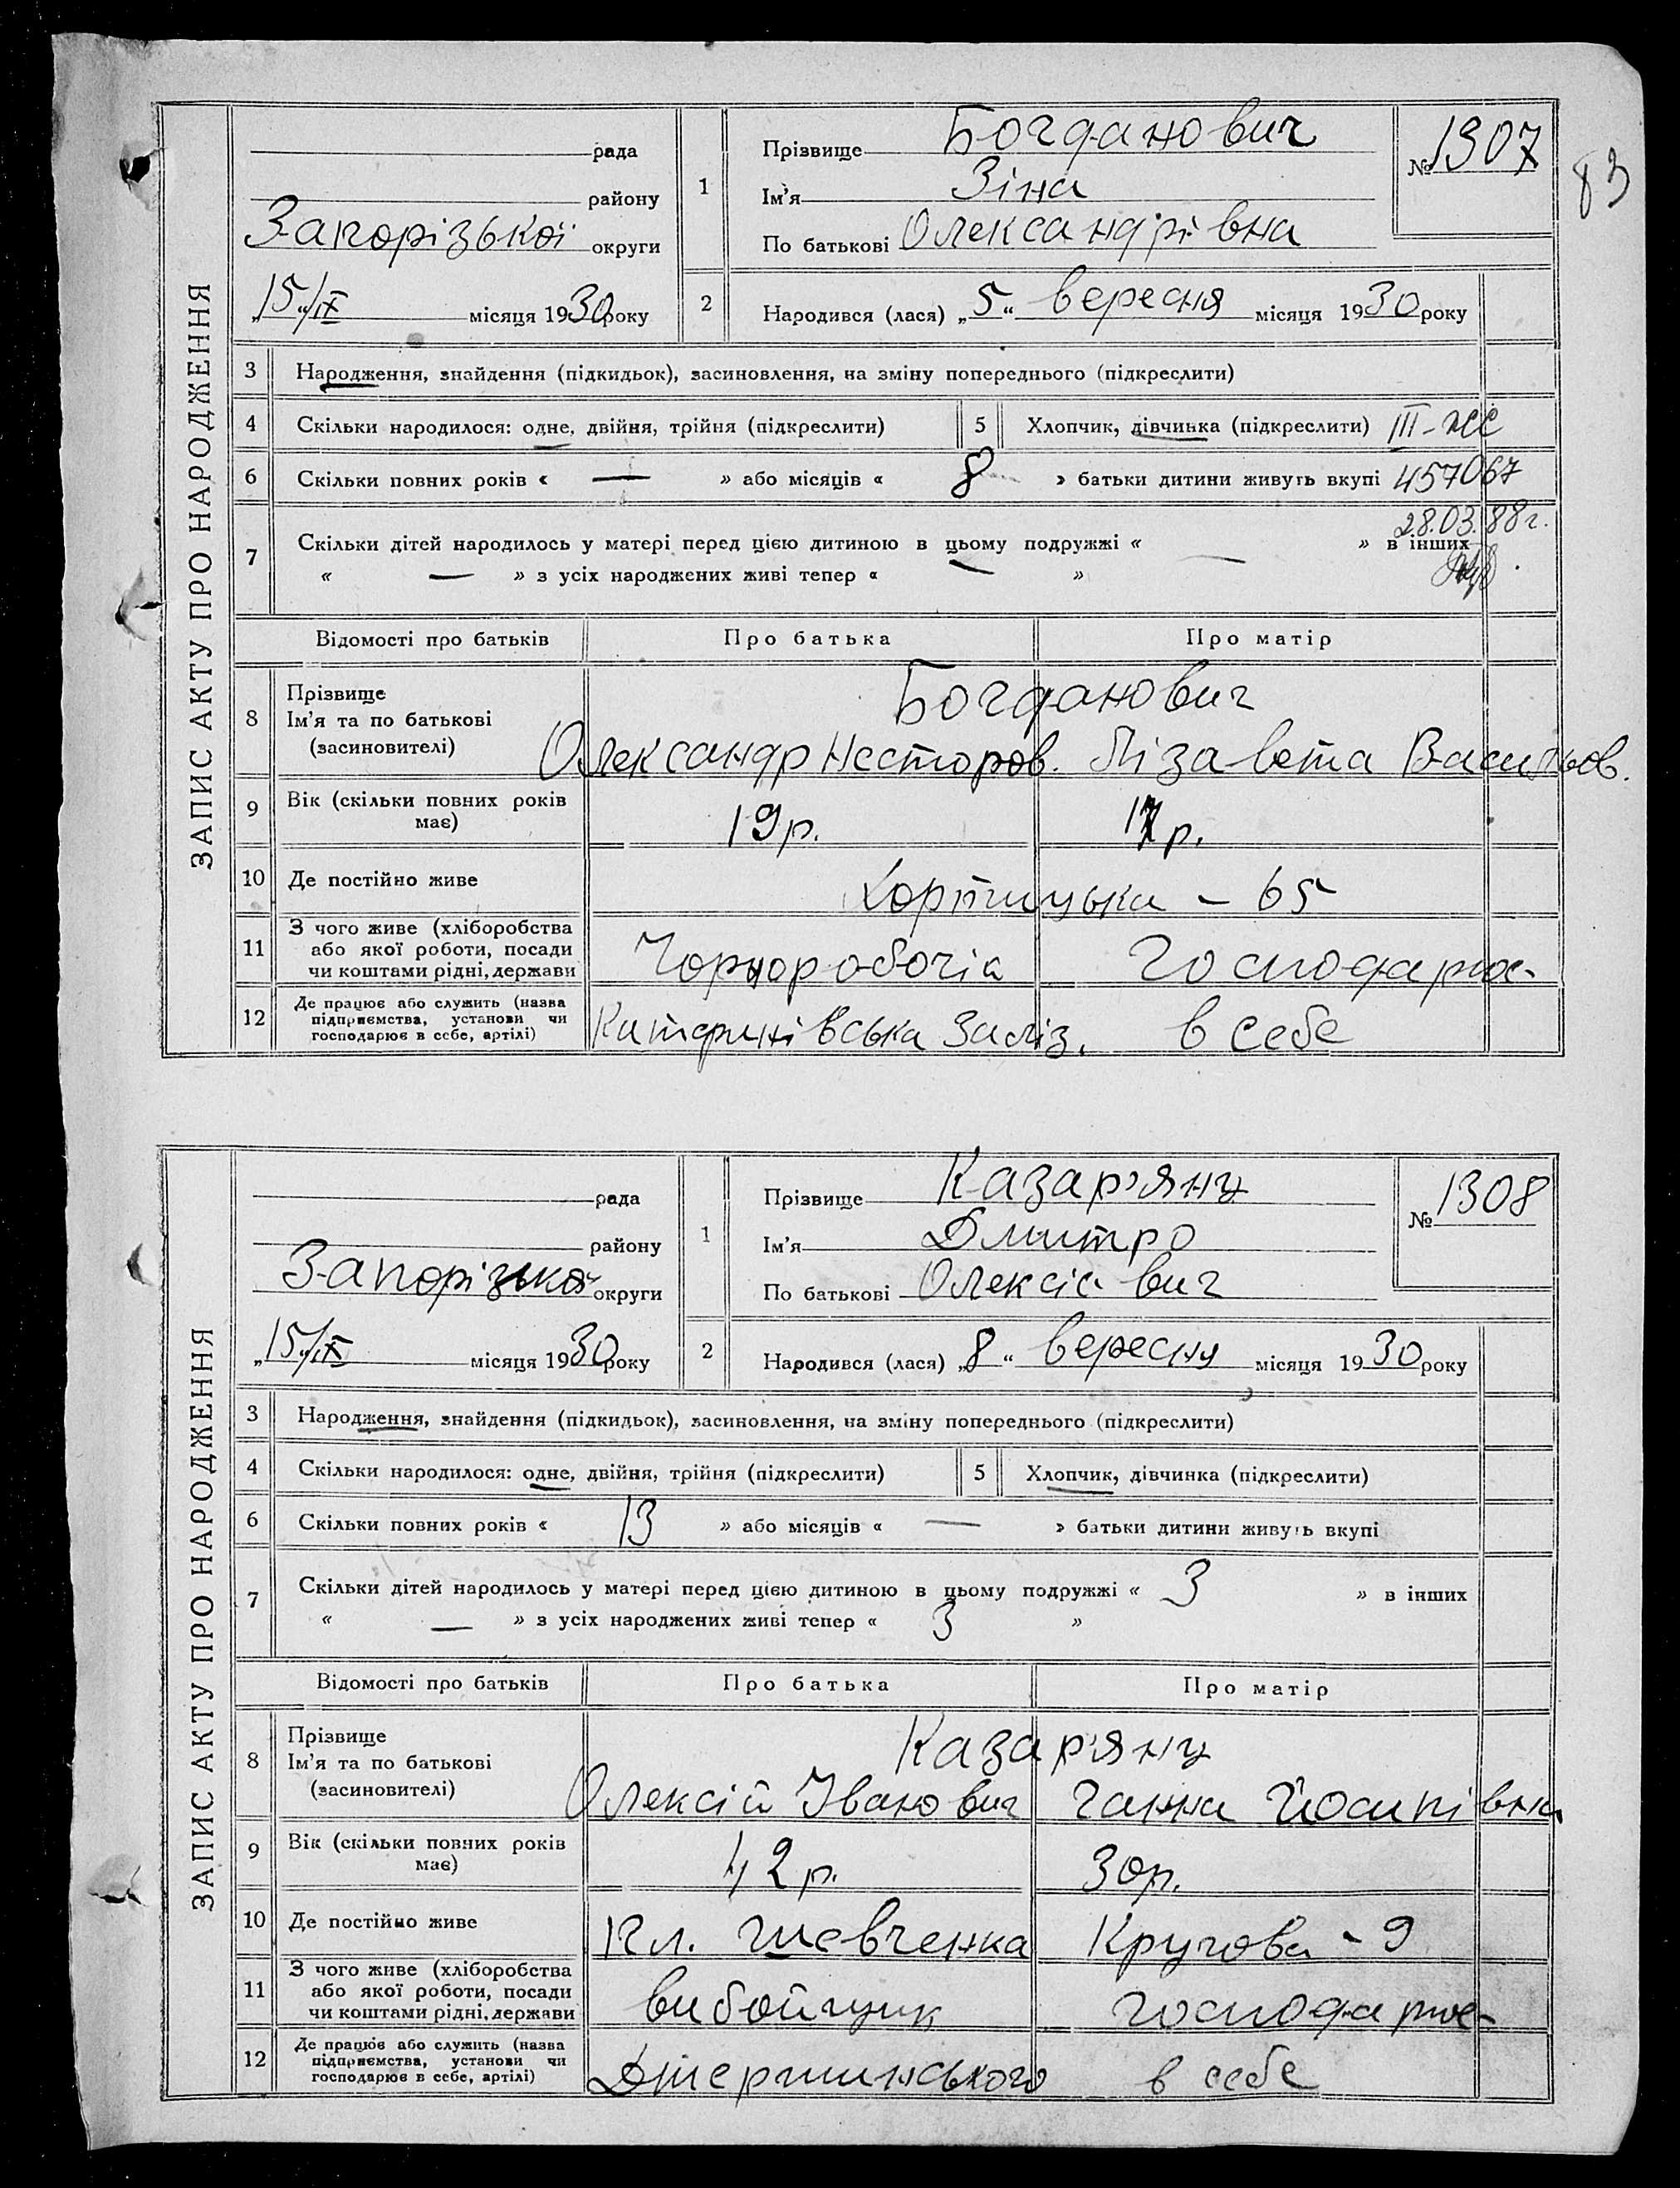 83
ЗАПИС АКТУ ПРО НАРОДЖЕННЯ
рада
району
Запорізької округи
„15“/IX місяця 1930 року
1
Прізвище Богданович
Ім'я Зіна
По батькові Олександрівна
№ 1307
2
Народився (лася) „5“ вересня місяця 1930 року
3 Народження, знайдення (підкидьок), засиновлення, на зміну попереднього (підкреслити)
4 Скільки народилося: одне, двійня, трійня (підкреслити) 5 Хлопчик, дівчинка (підкреслити) III-ЖС
6 Скільки повних років « — » або місяців « 8 » батьки дитини живуть вкупі 457067
28.03.88г.
7 Скільки дітей народилось у матері перед цією дитиною в цьому подружжі « — » в інших
« — » з усіх народжених живі тепер « — »
Відомості про батьків Про батька Про матір
8 Прізвище Богданович
Ім'я та по батькові
(засиновителі) Олександр Несторов. Лізавета Васильов.
9 Вік (скільки повних років має) 19р. 17р.
10 Де постійно живе Хортицька – 65
11 З чого живе (хліборобства
або якої роботи, посади
чи коштами рідні, держави Чорноробочій Господарює
12 Де працює або служить (назва
підприємства, установи чи
господарює в себе, артілі) Катеринівська Заліз. в себе
ЗАПИС АКТУ ПРО НАРОДЖЕННЯ
рада
району
Запорізької округи
„15“/IX місяця 1930 року
1
Прізвище Казар'янц
Ім'я Дмитро
По батькові Олексієвич
№ 1308
2
Народився (лася) „8“ вересня місяця 1930 року
3 Народження, знайдення (підкидьок), засиновлення, на зміну попереднього (підкреслити)
4 Скільки народилося: одне, двійня, трійня (підкреслити) 5 Хлопчик, дівчинка (підкреслити)
6 Скільки повних років « 13 » або місяців « — » батьки дитини живуть вкупі
7 Скільки дітей народилось у матері перед цією дитиною в цьому подружжі « 3 » в інших
« — » з усіх народжених живі тепер « 3 »
Відомості про батьків Про батька Про матір
8 Прізвище Казар'янц
Ім'я та по батькові
(засиновителі) Олексій Іванович Ганна Йосипівна
9 Вік (скільки повних років має) 42р. 30р.
10 Де постійно живе Пл. Шевченка Кругова - 9
11 З чого живе (хліборобства
або якої роботи, посади
чи коштами рідні, держави вибойщик господарює
12 Де працює або служить (назва
підприємства, установи чи
господарює в себе, артілі) Дзержинського в себе